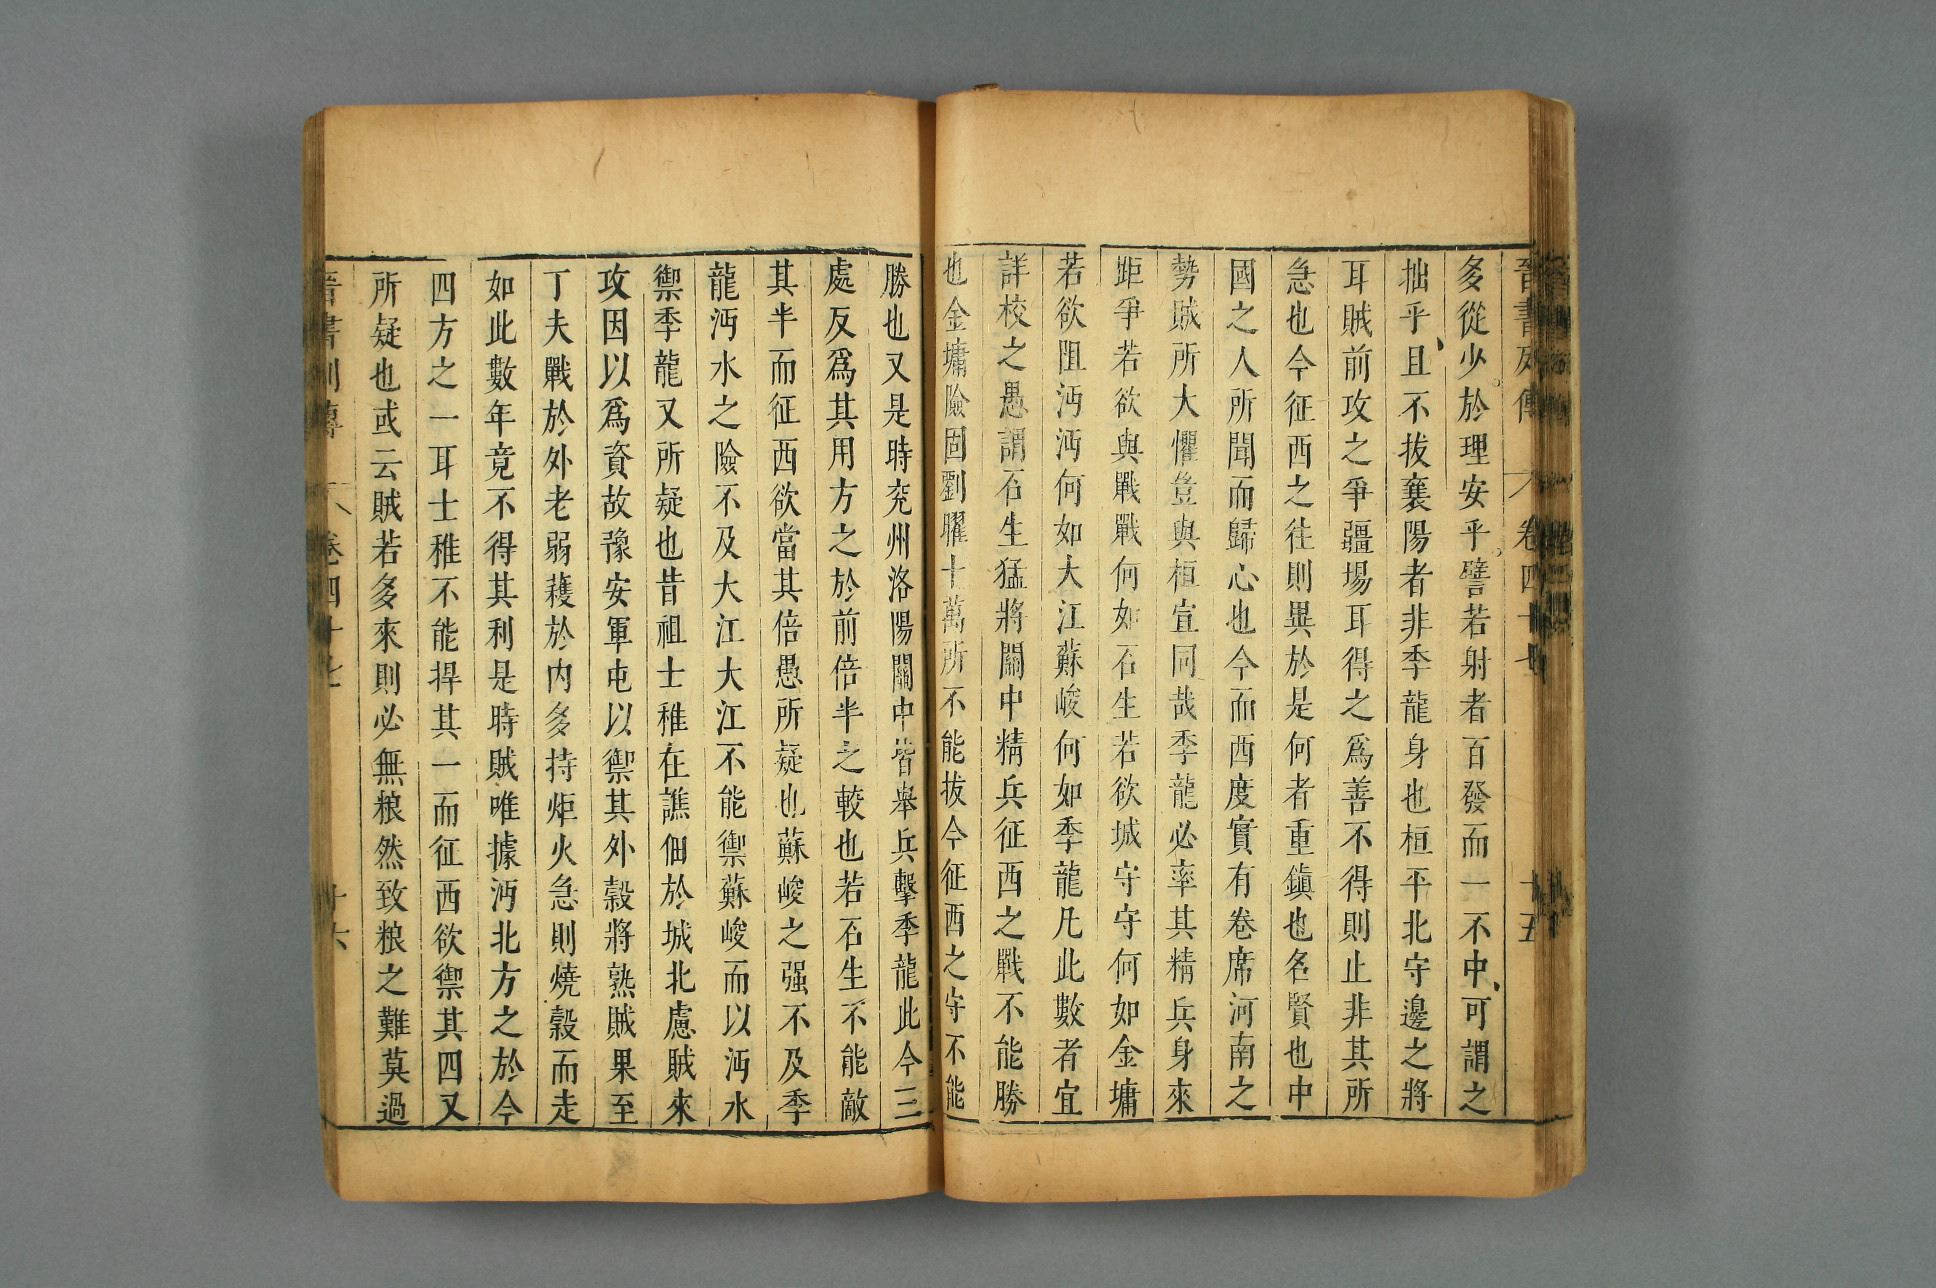 晉書列傳 卷四十七 十五
多從少於理安乎譬若射者百發而一不中可謂之
拙乎且不拔襄陽者非季龍身也桓平北守邊之將
耳賊前攻之爭疆場耳得之為善不得則止非其所
急也今征西之往則異於是何者重鎮也名賢也中
國之人所聞而歸心也今而西度實有卷席河南之
勢賊所大懼豈與桓宣同哉季龍必率其精兵身來
距爭若欲與戰戰何如石生若欲城守守何如金墉
若欲阻沔沔何如大江蘇峻何如季龍凡此數者宜
詳校之愚謂石生猛將關中精兵征西之戰不能勝
也金墉險固劉曜十萬所不能拔今征西之守不能
勝也又是時兗州洛陽關中皆舉兵擊季龍此今三
處反爲其用方之於前倍半之較也若石生不能敵
其半而征西欲當其倍愚所疑也蘇峻之强不及季
龍沔水之險不及大江大江不能禦蘇峻而以沔水
禦季龍又所疑也昔祖士稚在譙佃於城北慮賊來
攻因以爲資故豫安軍屯以禦其外穀將熟賊果至
丁夫戰於外老弱穫於内多持炬火急則燒穀而走
如此數年竟不得其利是時賊唯據沔北方之於今
四方之一耳士稚不能捍其一而征西欲禦其四又
所疑也或云賊若多來則必無粮然致粮之難莫過
晉書列傳 卷四十七 十六